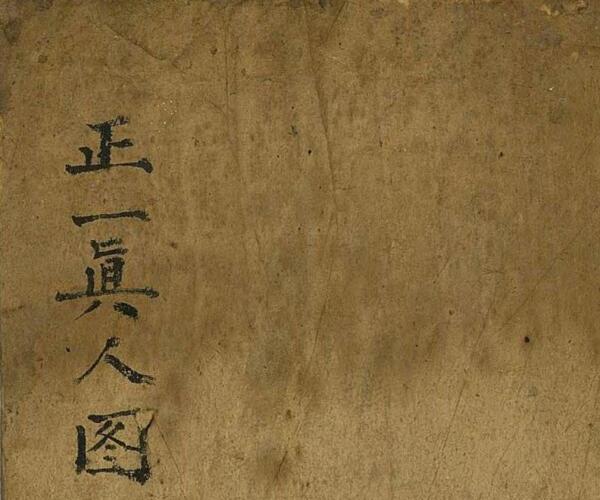 正一眞人图